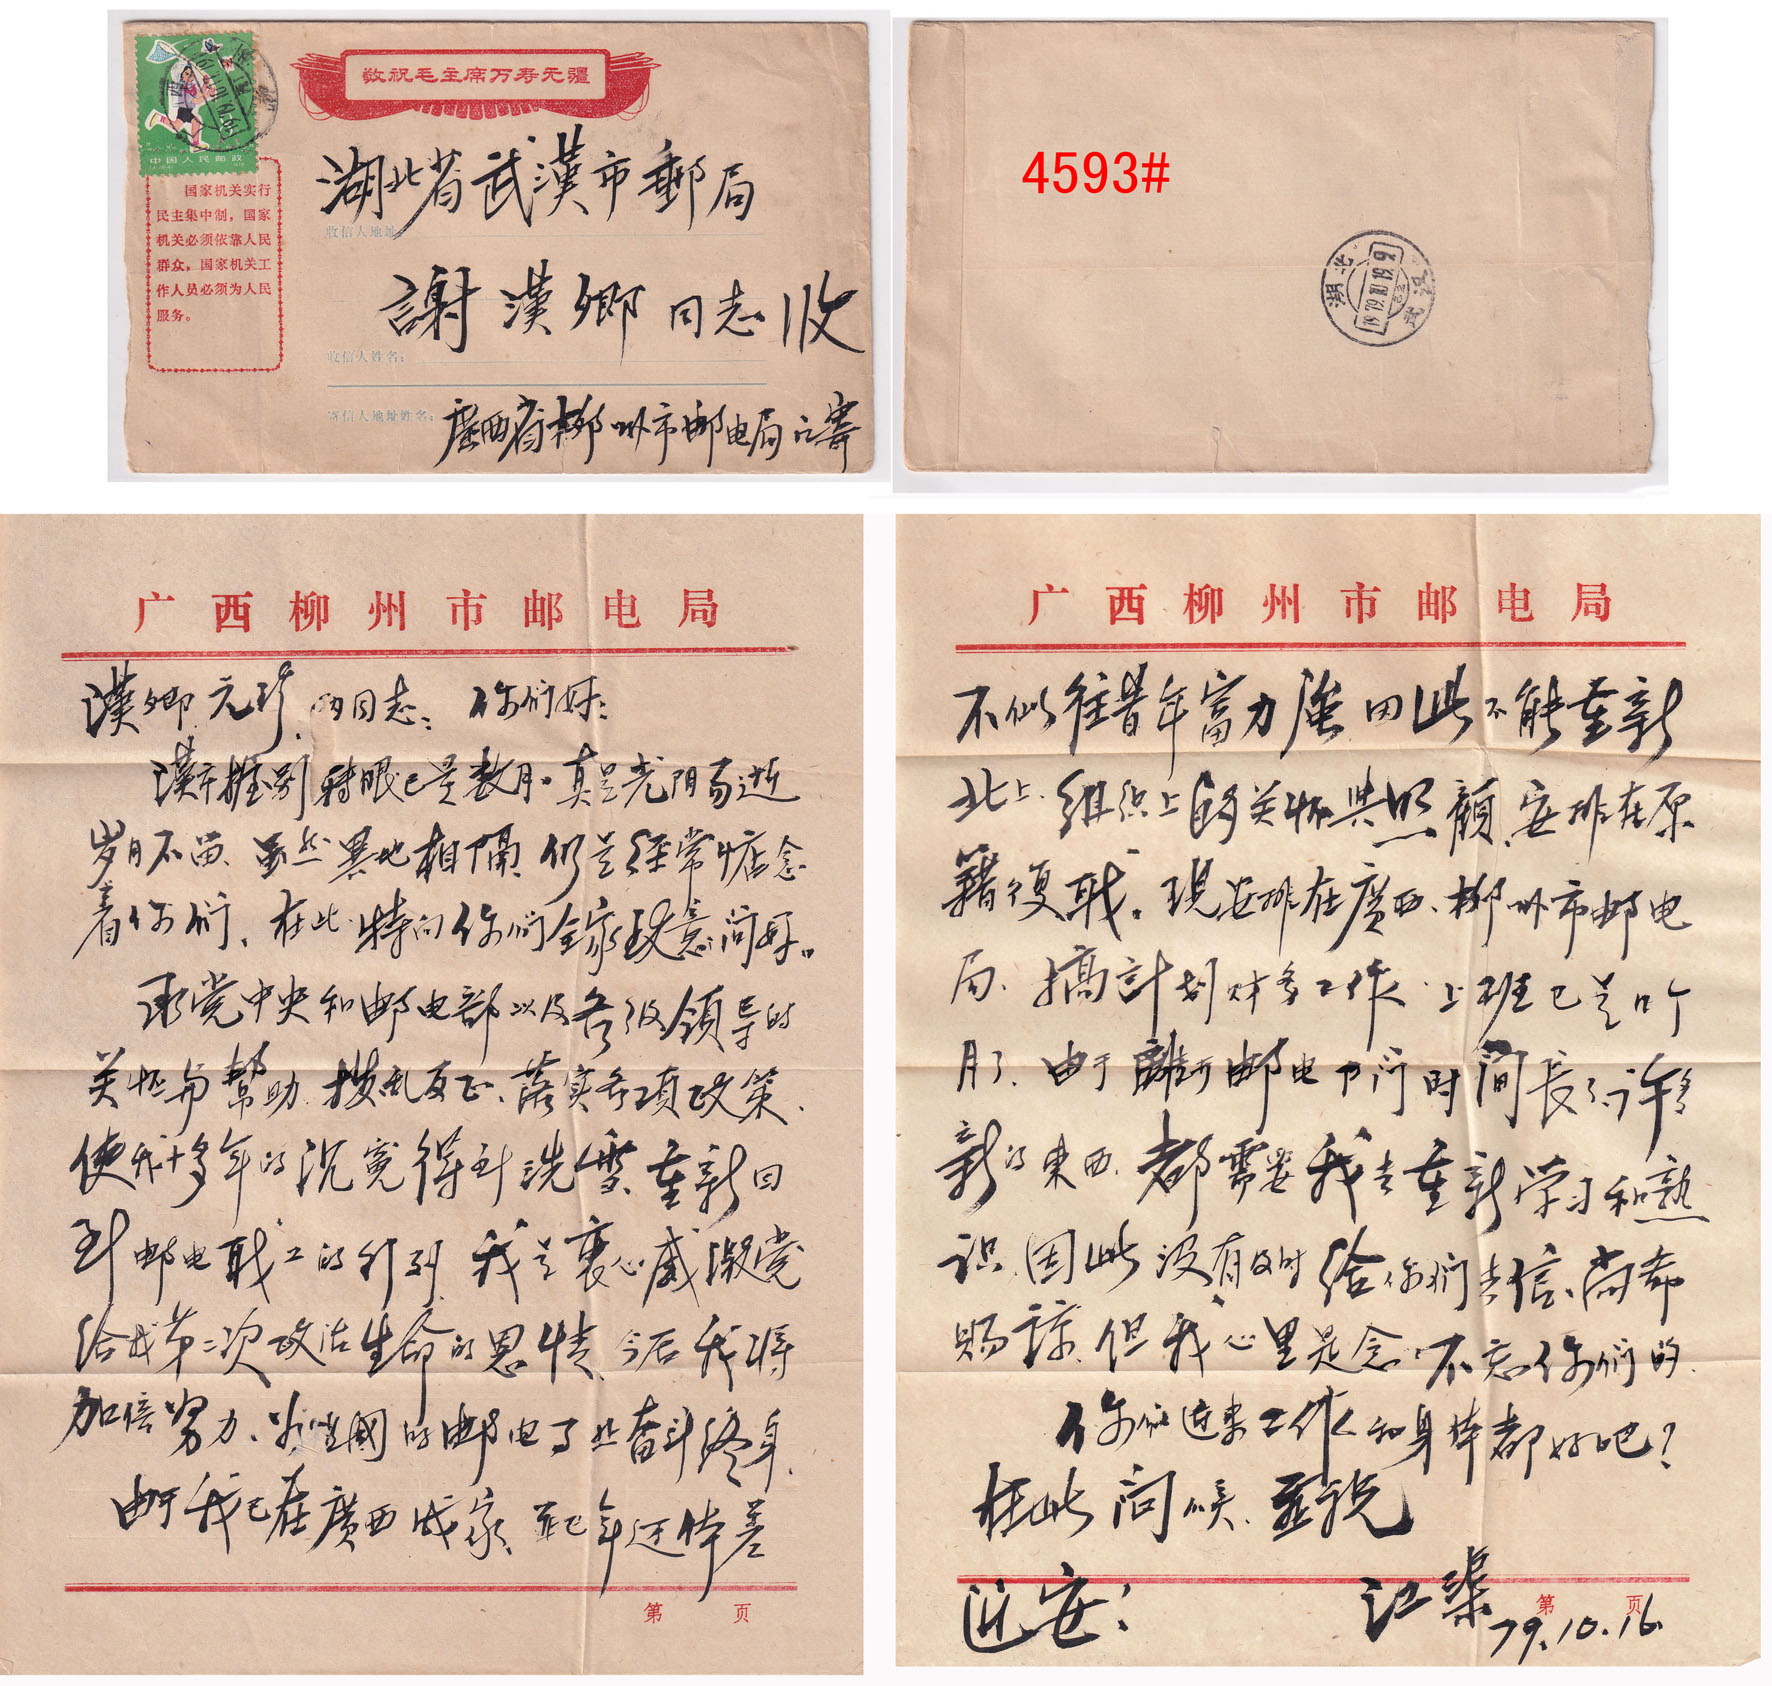 敬祝毛主席万寿无疆
中国人民邮政
国家机关实行
民主集中制，国家
机关必须依靠人民
群众，国家机关工
作人员必须为人民
服务。
湖北省武漢市郵局
收信人地址
謝漢卿同志收
收信人姓名：
寄信人地址姓名：
廣西省柳州市邮电局江寄
4593#
湖北
武汉
广西柳州市邮电局
漢卿、元珍、两同志：你们好：
漢市握别转眼已是数月。真是光阴易逝
岁月不留、虽然異地相隔、仍是经常惦念
着你们、在此、特向你们全家致意问好。
承党中央和邮电部以及各级领导的
关怀与幫助、拨乱反正、落实各项政策、
使我十多年的沉冤得到洗雪、重新回
到邮电职工的行列、我是衷心感激党
给我第二次政治生命的恩情、今后我将
加倍努力、为祖國的邮电事业奋斗终身、
由于我已在廣西成家、並已年迈体差
第 页
广西柳州市邮电局
不似往昔年富力强、因此不能重新
北上、组织上的关怀與照顧、安排在原
籍复职。现安排在廣西、柳州市邮电
局、搞计划财务工作、上班已是叫个
月了、由于離开邮电部门时间長了、许多
新的東西、都需要我去重新学习和熟
识、因此没有及时给你们去信、尚希
赐諒、但我心里是念、不忘你们的、
你们近来工作和身体都好吧？
在此问候、並祝
近安！
江渠
第 页
79.10.16.